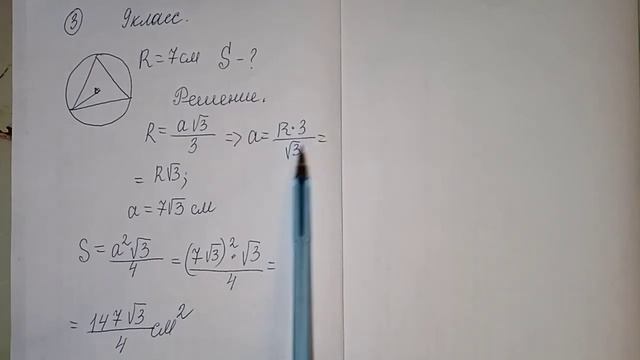 ③ 9класс.
R = 7см S - ?
Решение.
R = a√3/3 => a = R·3/√3 =
= R√3;
a = 7√3 см
S = a²√3/4 = (7√3)²·√3/4 =
= 147√3/4 см²